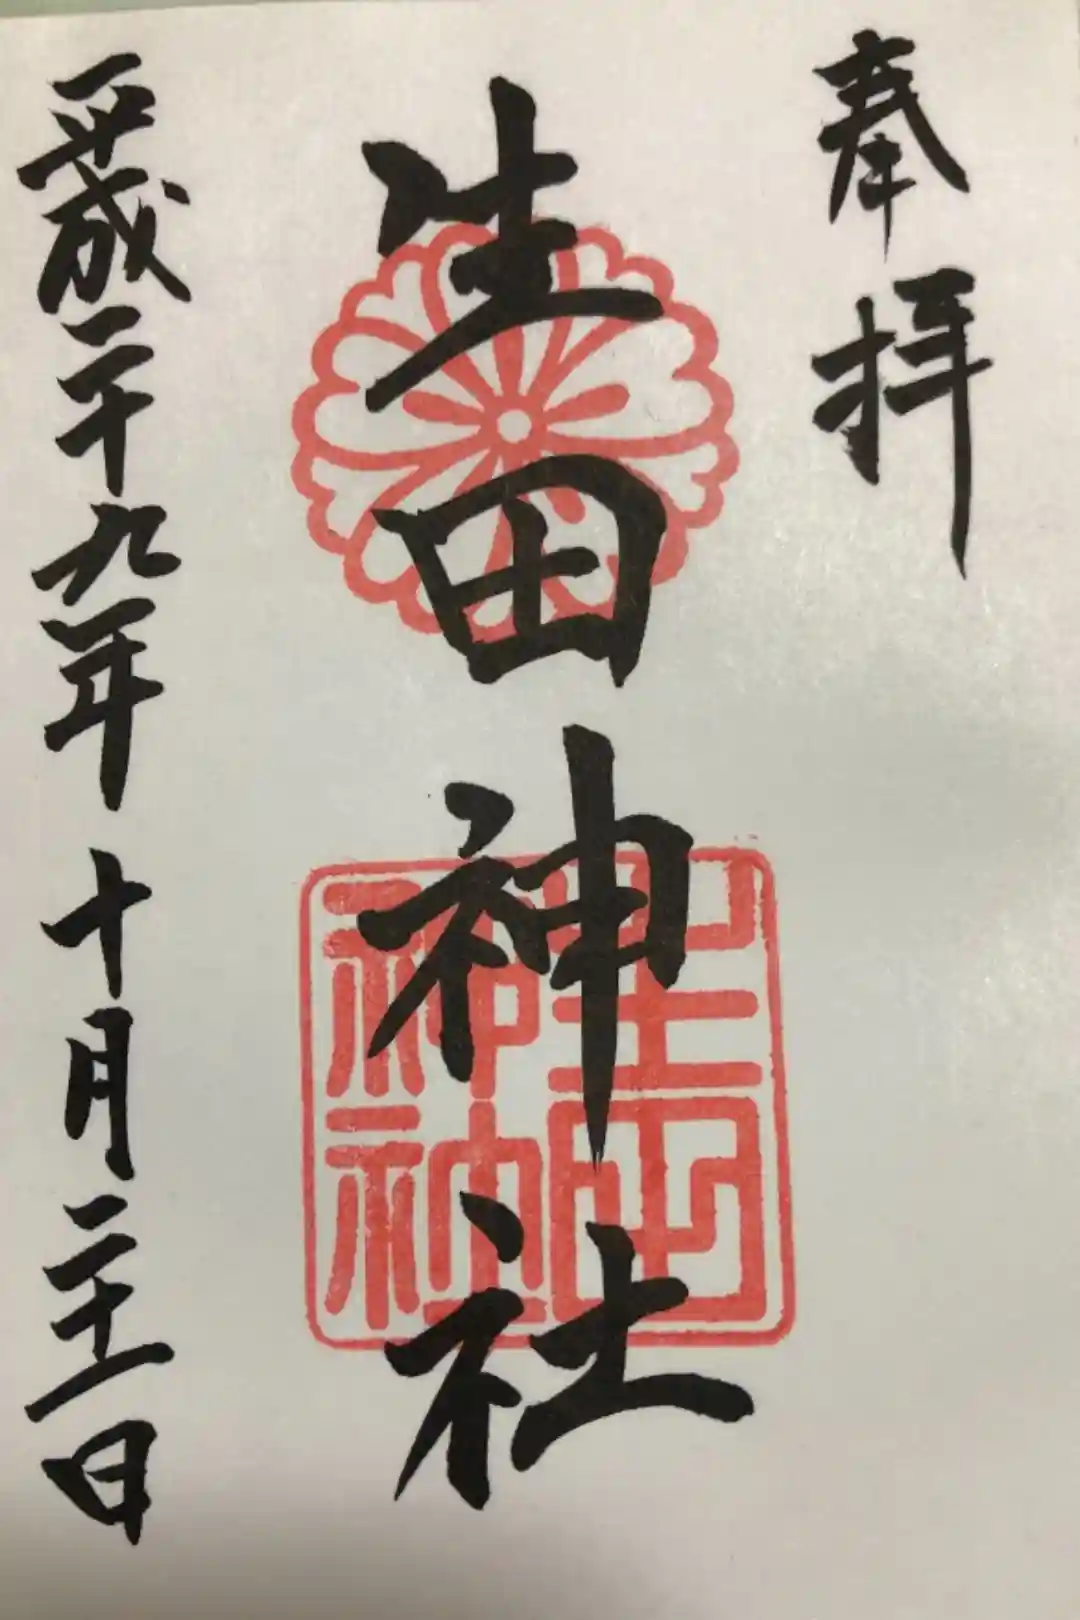 奉拝
生田神社
平成二十九年十月二十一日
生田神社